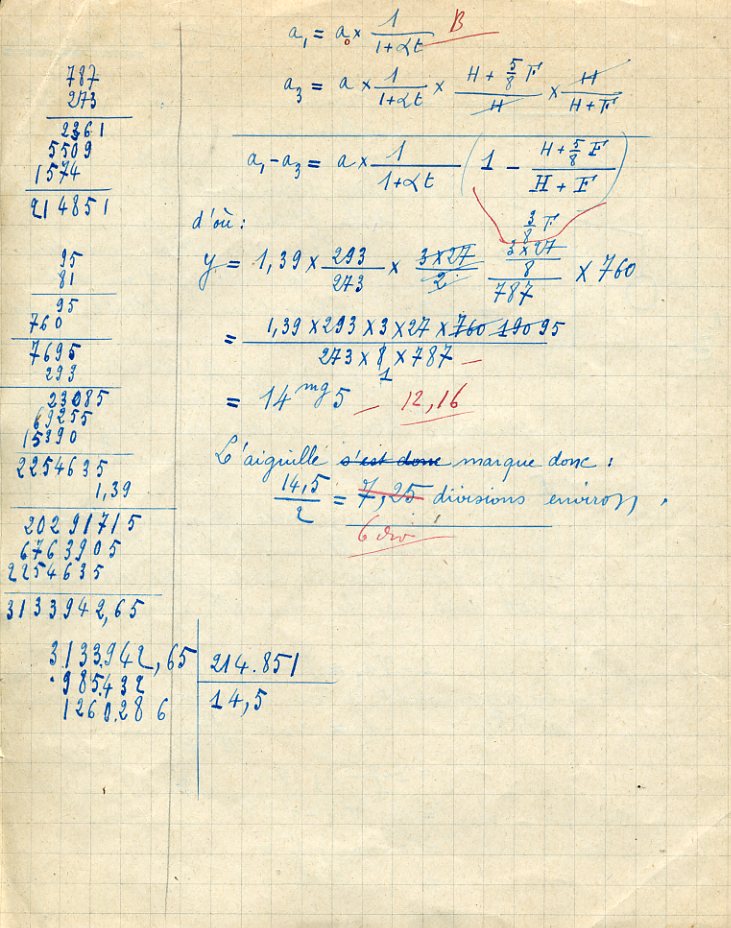 a₁ = a₀ × 1/(1+αt) B
a₃ = a × 1/(1+αt) × (H + 5/8 F)/H × H/(H+F)
a₁-a₃ = a × 1/(1+αt) (1 - (H + 5/8 F)/(H + F))
3/8 F
d'où :
y = 1,39 × 293/273 × 3×27/2 (3×27/8)/787 × 760
= (1,39 × 293 × 3 × 27 × 760 190 95)/(273 × 8 × 787)
1
= 14 mg 5 — 12,16
L'aiguille s'est donc marque donc :
14,5/2 = 7,25 divisions environ.
6 div
787
273
2361
5509
1574
214851
95
81
95
760
7695
293
23085
69255
15390
2254635
1,39
20291715
6763905
2254635
3133942,65
3133.942,65 214.851
.985.432 14,5
1260.286